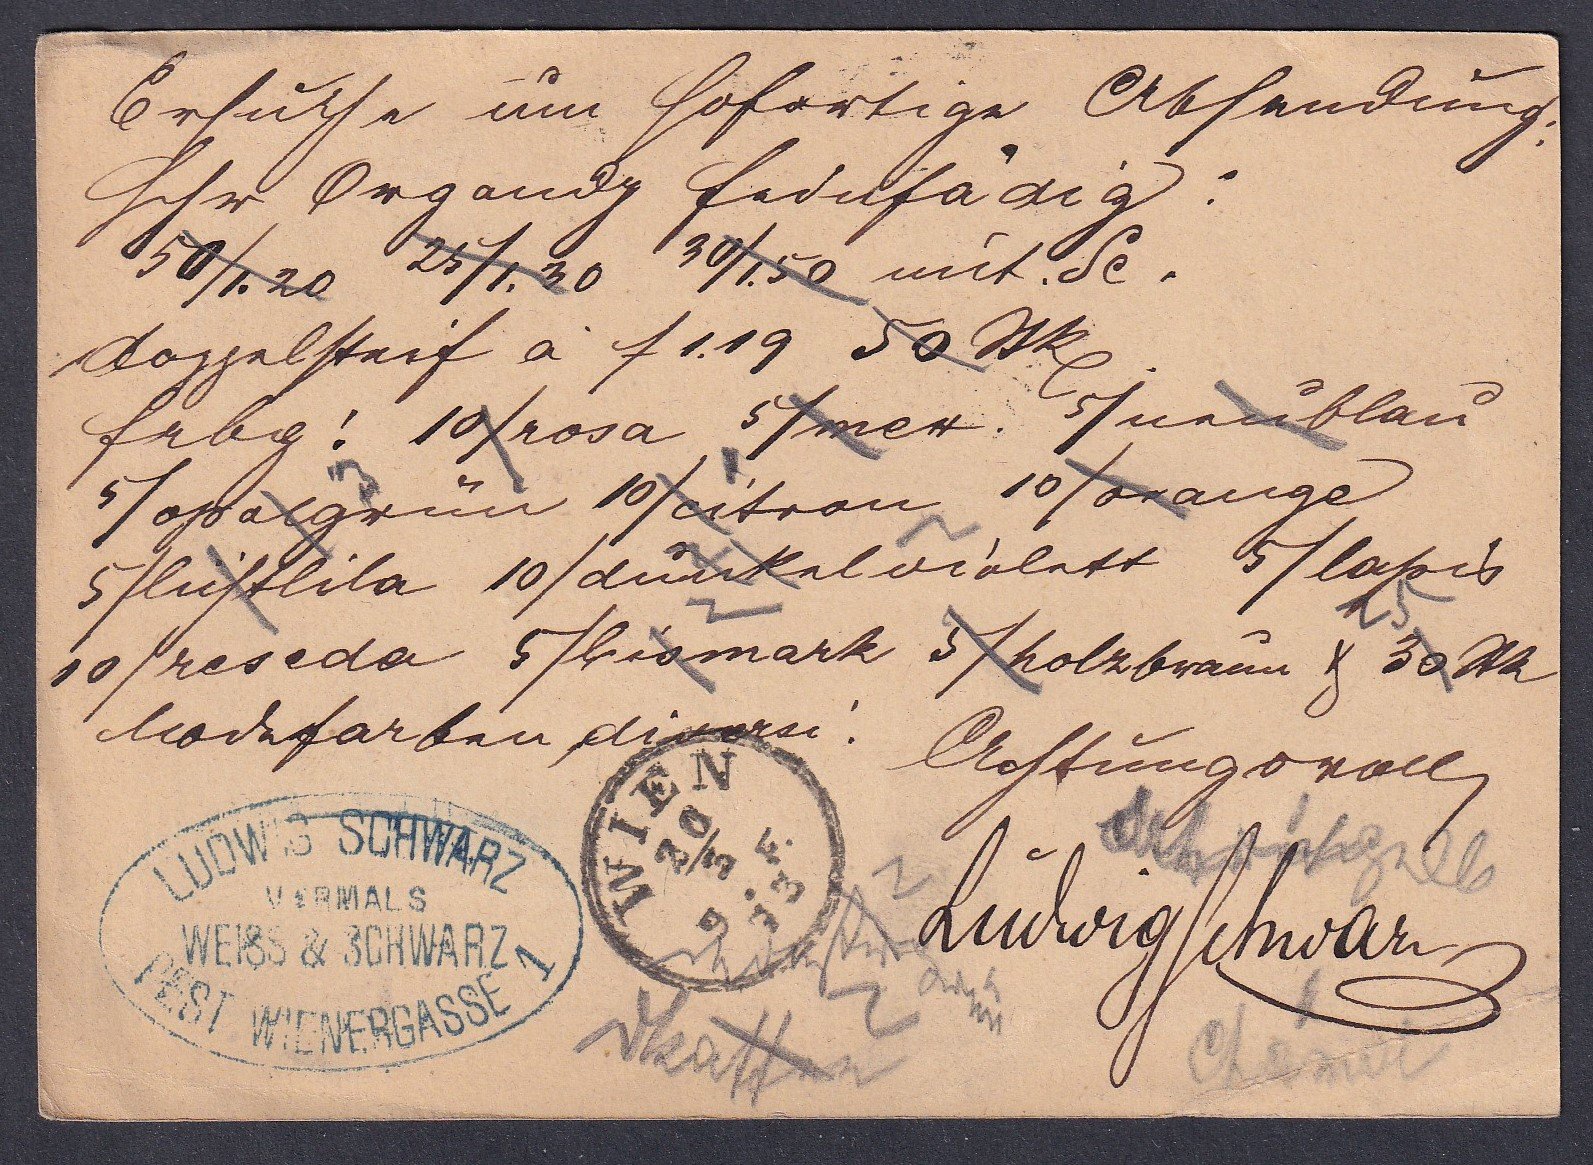 Ersuche um sofortige Absendung:
Schw Organdy feinfädig:
50/1.20 25/1.30 30/1.50 mit. Sc.
doppelsteif à f 1.19 50 Stk
frbg! 10/rosa 5/meer. 5/neublau
5/opalgrün 10/citron 10/orange
5/lichtlila 10/dunkelviolett 5/lapis
25
10/reseda 5/bismark 5/holzbraun & 30 Stk
Modefarben divers!
Achtungsvoll
Ludwig Schwarz
LUDWIG SCHWARZ
VORMALS
WEISS & SCHWARZ
PEST WIENERGASSE 1
WIEN
20/3